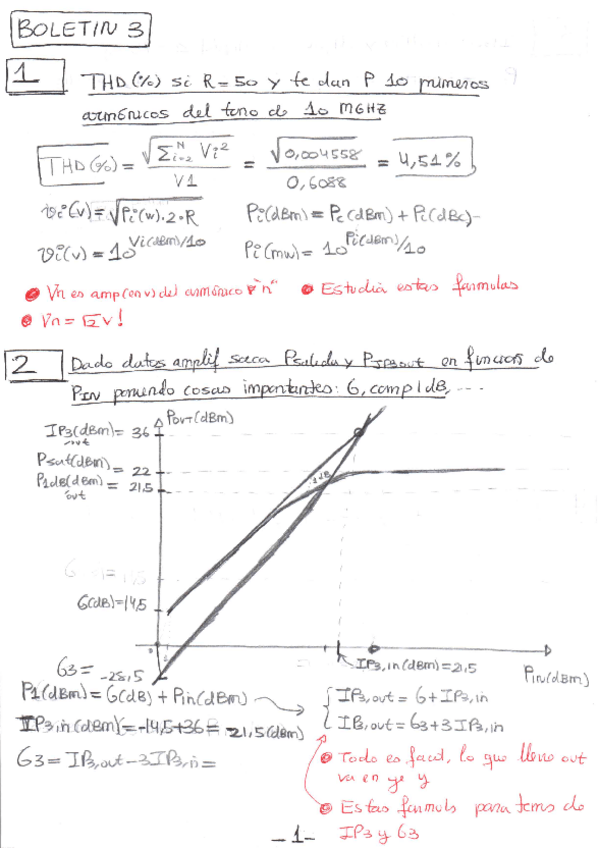 BOLETIN 3
1
THD(%) si R=50 y te dan P 10 primeros
armónicos del tono de 10 MGHZ
THD(%) = √(∑ᵢ₌₂ᴺ Vi²) / V1 = √0,004558 / 0,6088 = 4,51%
vi(v)=√(Pi(w)·2·R) Pi(dBm)=Pc(dBm)+Pi(dBc)
vi(v)=10^Vi(dBm)/10 Pi(mw)=10^Pi(dBm)/10
Vn es amp(en v) del armónico "n" • Estudia estas formulas
Vn=√2 v!
2
Dado datos amplif saca Psalida y PIP3out en funcion de
PIN poniendo cosas importantes: G, comp 1dB, ...
POUT(dBm)
IP3(dBm)out = 36
Psat(dBm) = 22
P1dB(dBm)out = 21,5
1dB
G(dB)=14,5
G3= -28,5
IP3,in(dBm)=21,5
Pin(dBm)
P1(dBm)=G(dB)+Pin(dBm)
IP3,out=G+IP3,in
IP3,in(dBm)=-14,5+36= 21,5(dBm)
IP3,out=G3+3IP3,in
G3=IP3,out-3IP3,in=
• Todo es facil, lo que lleve out
va en eje y
• Estas formuls para tems de
IP3 y G3
-1-